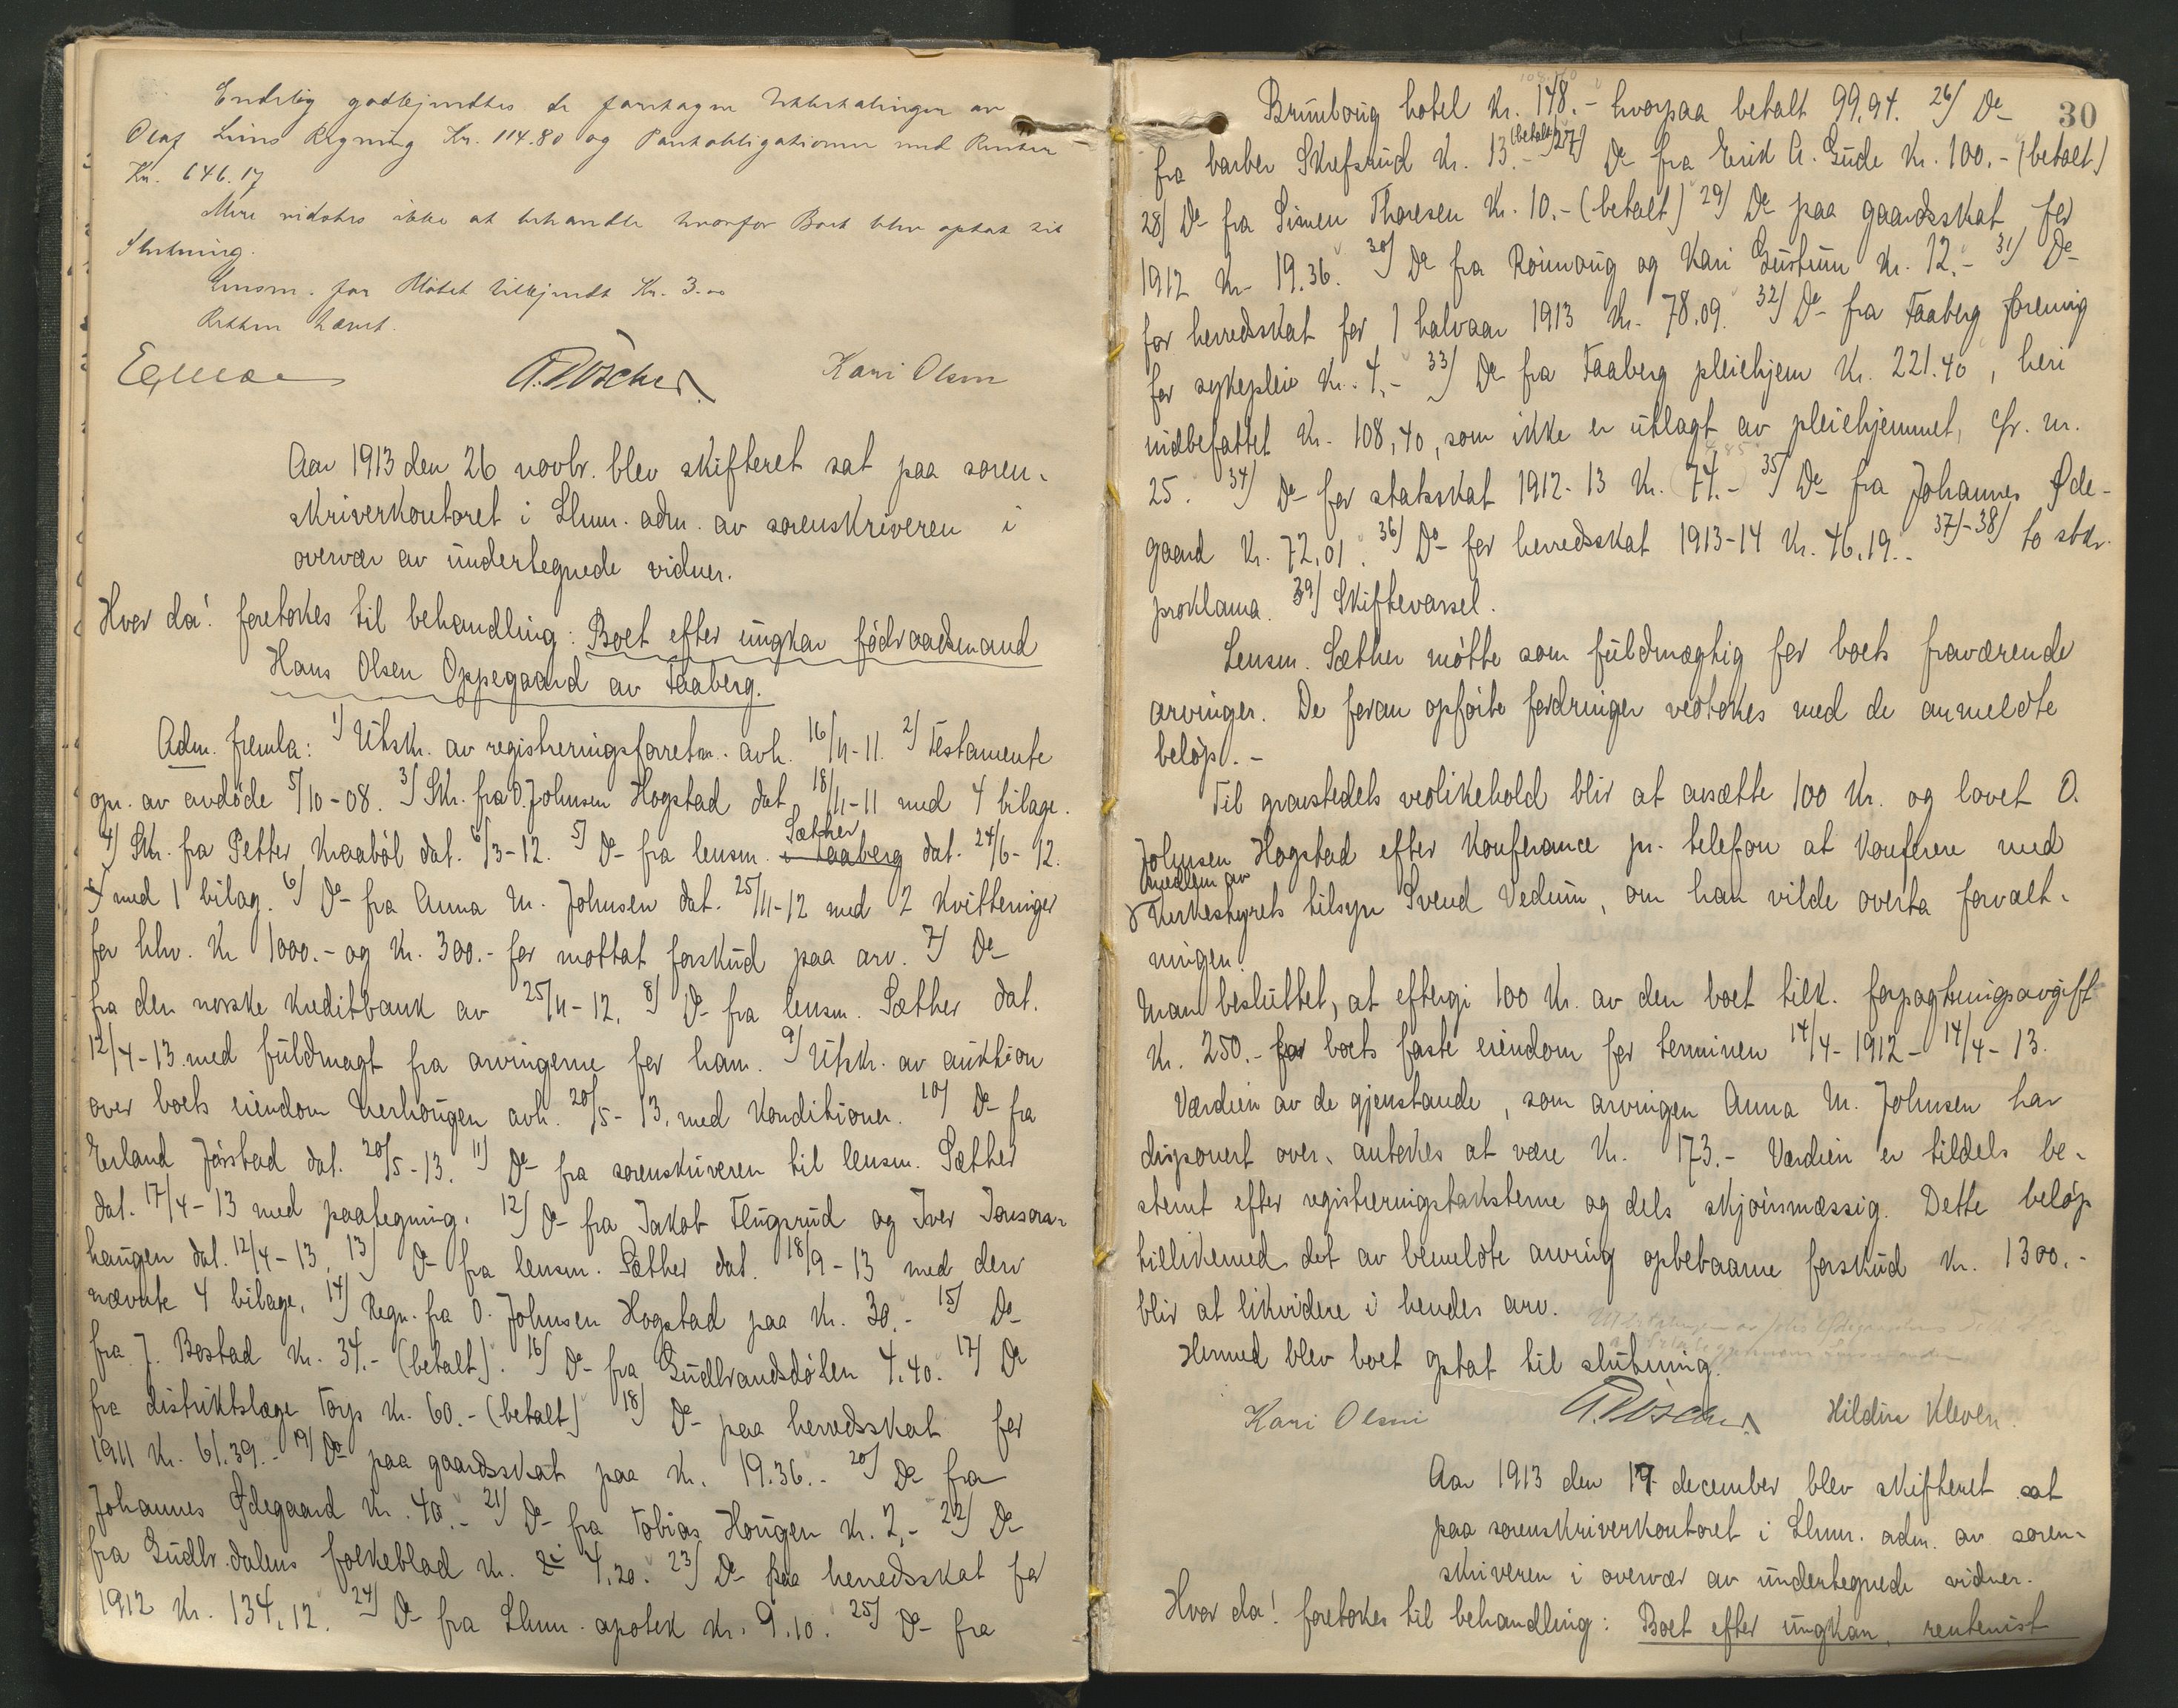 Endelig godkjendtes de foretagne Utbetalinger av
Olaf Liens Regning Kr. 114.80 og Pantobligationen med Renter
Kr. 646.17
Mere vidstes ikke at behandle hvorfor Boet blev optat til
Slutning.
Lensm. for Mötet tilkjendt Kr. 3.00
Retten hævet.
A. Döscher. Kari Olsen
Aar 1913 den 26 novbr. blev skifteret sat paa soren-
skriverkontoret i Lhmr. adm. av sorenskriveren i
overvær av undertegnede vidner.
Hvor da! foretokes til behandling: Boet efter ungkar födraadsmand
Hans Olsen Oppegaard av Faaberg.
Adm. fremla: 1) Utskr. av registreringsforretn. avh. 16/11-11. 2) Testamente
opr. av avdöde 5/10-08. 3) Skr. fra O. Johnsen Hogstad dat. 18/11-11 med 4 bilage.
4) Skr. fra Petter Kraaböl dat. 6/3-12. 5) Do fra lensm. i Faaberg Sæther dat. 24/6-12.
med 1 bilag. 6) Do fra Anna M. Johnsen dat. 25/11-12 med 2 kvitteringer
for hhv. Kr 1000.- og Kr. 300.- for mottat forskud paa arv. 7) Do
fra den norske kreditbank av 25/11-12. 8) Do fra lensm. Sæther dat.
12/4-13 med fuldmagt fra arvingerne for ham. 9) Utskr. av auktion
over boets eiendom Nerhougen avh. 20/5-13. med konditioner. 10) Do fra
Erland Jörstad dat. 20/5-13. 11) Do fra sorenskriveren til lensm. Sæther
dat. 17/4-13 med paategning. 12) Do fra Jakob Flugsrud og Iver
haugen dat. 12/4-13. 13) Do fra lensm. Sæther dat. 18/9-13 med derv
nævnte 4 bilage. 14) Regn. fra O. Johnsen Hogstad paa Kr. 30.- 15) Do
fra J. Bostad Kr. 34.- (betalt). 16) Do fra Gudbrandsdölen 4.40. 17) Do
fra distriktslæge Torp Kr. 60.- (betalt) 18) Do paa herredsskat for
1911 Kr. 61.39.- 19) Do paa gaardsskat paa Kr. 19.36.- 20) Do fra
Johannes Ødegaard Kr. 40.- 21) Do fra Tobias Hougen Kr. 2.- 22) Do
fra Gudbr.dalens folkeblad Kr. 4.20. 23) Do paa herredsskat for
1912 Kr. 134.12. 24) Do fra Lhmr. apotek Kr. 9.10. 25) Do fra
30
Brunboug hotel Kr. 148.- hvorpaa betalt 99.94. 26) Do
fra barber Skrefsrud Kr. 13.- (betalt) 27) Do fra Erik A. Gude Kr. 100.- (betalt)
28) Do fra Simen Thoresen Kr. 10.- (betalt) 29) Do paa gaardsskat for
1912 Kr. 19.36. 30) Do fra Rönnoug og Kari Gustum Kr. 12.- 31) Do
for herredskat for 1 halvaar 1913 Kr. 78.09. 32) Do fra Faaberg forening
for sykepleie Kr. 4.- 33) Do fra Faaberg pleiehjem Kr. 221.40, heri
indbefattet Kr. 108,40, som ikke er utlagt av pleiehjemmet, cfr. nr.
25. 34) Do for statsskat 1912-13 Kr. 74.- 35) Do fra Johannes Øde-
gaard Kr. 72.01. 36) Do for herredsskat 1913-14 Kr. 46.19.- 37)-38) to stkr.
proklama. 39) Skiftevarsel.
Lensm. Sæther mötte som fuldmægtig for boets fraværende
arvinger. De foran opförte fordringer vedtokes med de anmeldte
belöp.-
Til gravstedets vedlikehold blir at avsætte 100 Kr. og lovet O.
Johnsen Hogstad efter konferance pr. telefon at konferere med
medlem av
Kirkestyrets tilsyn Svend Vedum, om han vilde overta forvalt-
ningen.
Man besluttet, at eftergi 100 Kr. av den boet tilk. forpagtningsavgift
Kr. 250.- for boets faste eiendom for terminen 14/4-1912 - 14/4-13.
Værdien av de gjenstande, som arvingen Anna M. Johnsen har
disponert over, antokes at være Kr. 173.- Værdien er tildels be-
stemt efter registreringstaksterne og dels skjönsmæssig. Dette belöp
tillikemed det av bemeldte arving opbebaarne forskud Kr. 1300.-
blir at likvidere i hendes arv.
Hermed blev boet optat til slutning.
Kari Olsen A. Döscher. Hildur Kleven.
Aar 1913 den 17 december blev skifteret sat
paa sorenskriverkontoret i Lhmr. adm. av soren-
skriveren i overvær av undertegnede vidner.
Hvor da! foretokes til behandling: Boet efter ungkar, rentenist